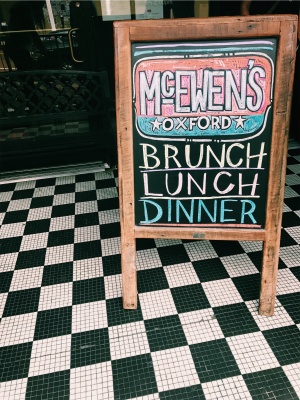 McEWEN'S
★OXFORD★
BRUNCH
LUNCH
DINNER